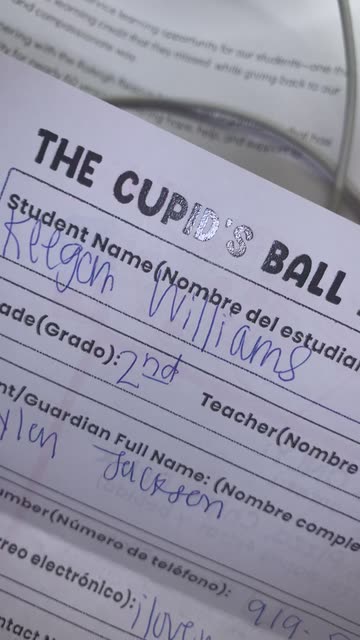 vice learning opportunity for our students—one tha
learning credit that they missed while giving back to our
and compassionate way.
nering with the Raleigh Rescue
ty for nearly 60 years
hope, help, and support to
that has
THE CUPID'S BALL
Student Name(Nombre del estudia
Keegan Williams
ade(Grado): 2nd Teacher(Nombre
nt/Guardian Full Name: (Nombre comple
Jackson
umber(Número de teléfono): 919-
reo electrónico): ilove
ontact N